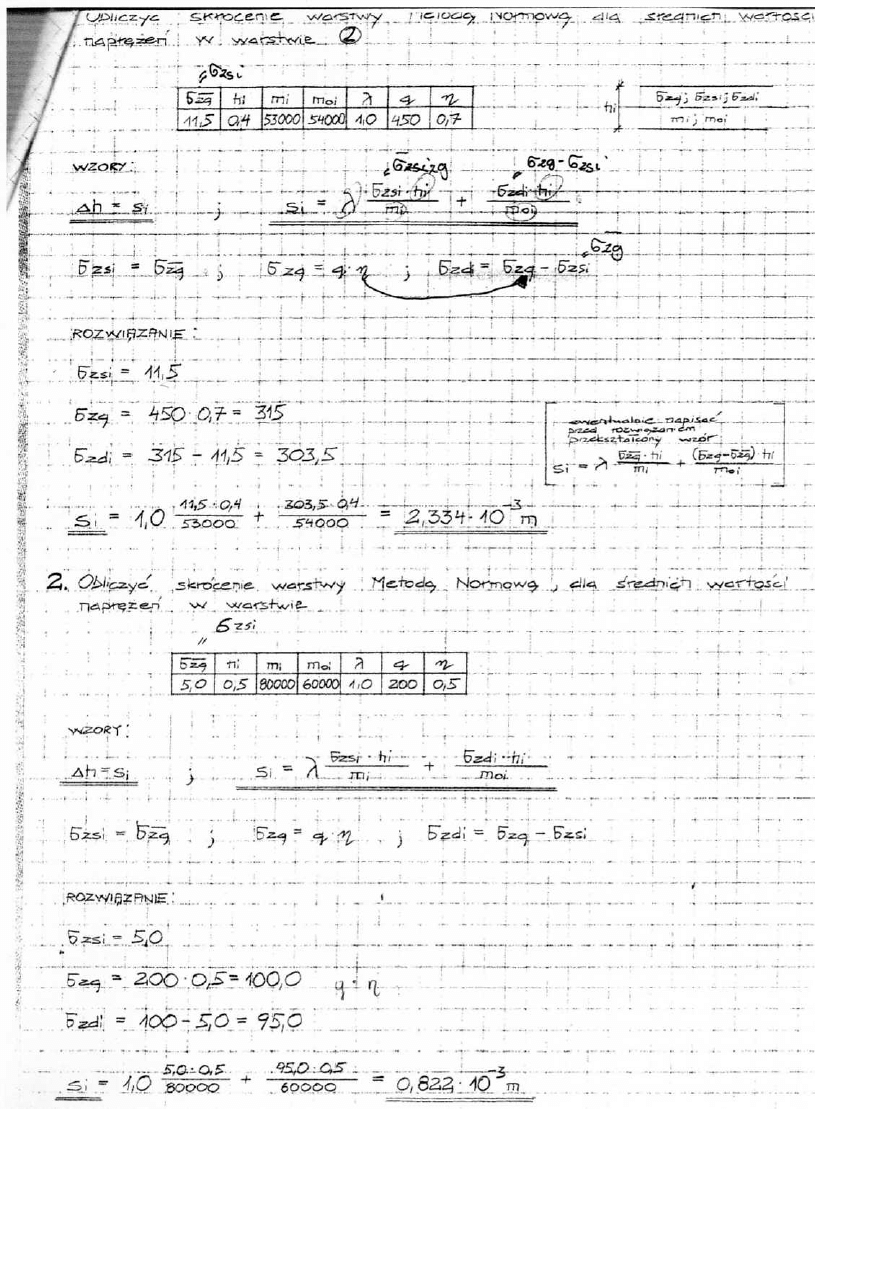 Obliczyć skrócenie warstwy Metodą Normową dla średnich wartości
naprężeń w warstwie ②
„σzsi
σ̅zg | hi | mi | moi | λ | q | η
11,5 | 0,4 | 53000 | 54000 | 1,0 | 450 | 0,7
hi
σzq; σzsi; σzdi
mi; moi
WZORY:
σzsizg σzq-σzsi
Δh = si ; si = λ σzsi·hi/mi + σzdi·hi/moi
σzg
σzsi = σ̅zg ; σzq = q·η ; σzdi = σzq - σzsi
ROZWIĄZANIE:
σzsi = 11,5
σzq = 450·0,7 = 315
σzdi = 315 - 11,5 = 303,5
ewentualnie napisać
przed rozwiązaniem
przekształcony wzór
si = λ σ̅zg·hi/mi + (σzq-σ̅zg)·hi/moi
si = 1,0 11,5·0,4/53000 + 303,5·0,4/54000 = 2,334·10⁻³ m
2. Obliczyć skrócenie warstwy Metodą Normową, dla średnich wartości
naprężeń w warstwie
σzsi
„
σ̅zg | hi | mi | moi | λ | q | η
5,0 | 0,5 | 80000 | 60000 | 1,0 | 200 | 0,5
WZORY:
Δh = si ; si = λ σzsi·hi/mi + σzdi·hi/moi
σzsi = σ̅zg ; σzq = q·η ; σzdi = σzq - σzsi
ROZWIĄZANIE:
σzsi = 5,0
σzq = 200·0,5 = 100,0 q·η
σzdi = 100 - 5,0 = 95,0
si = 1,0 5,0·0,5/80000 + 95,0·0,5/60000 = 0,822·10⁻³ m